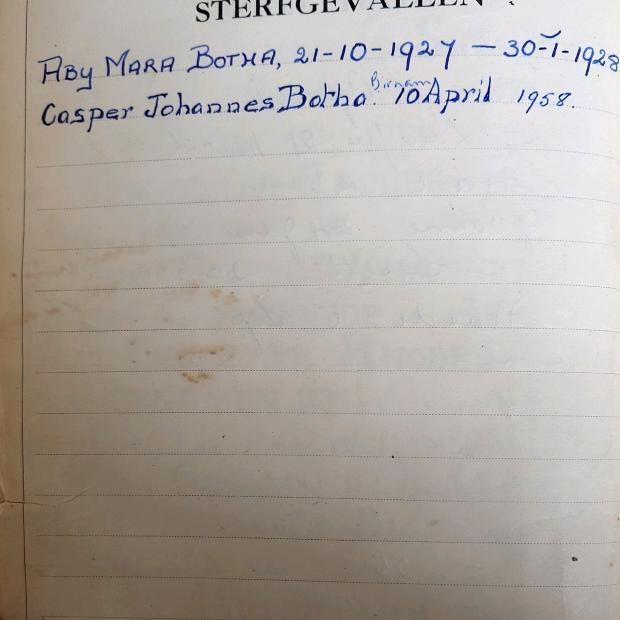 STERFGEVALLEN
ABy MARA BOTHA, 21-10-1927 — 30-1-1928
Casper Johannes Botha. 10 April 1958.